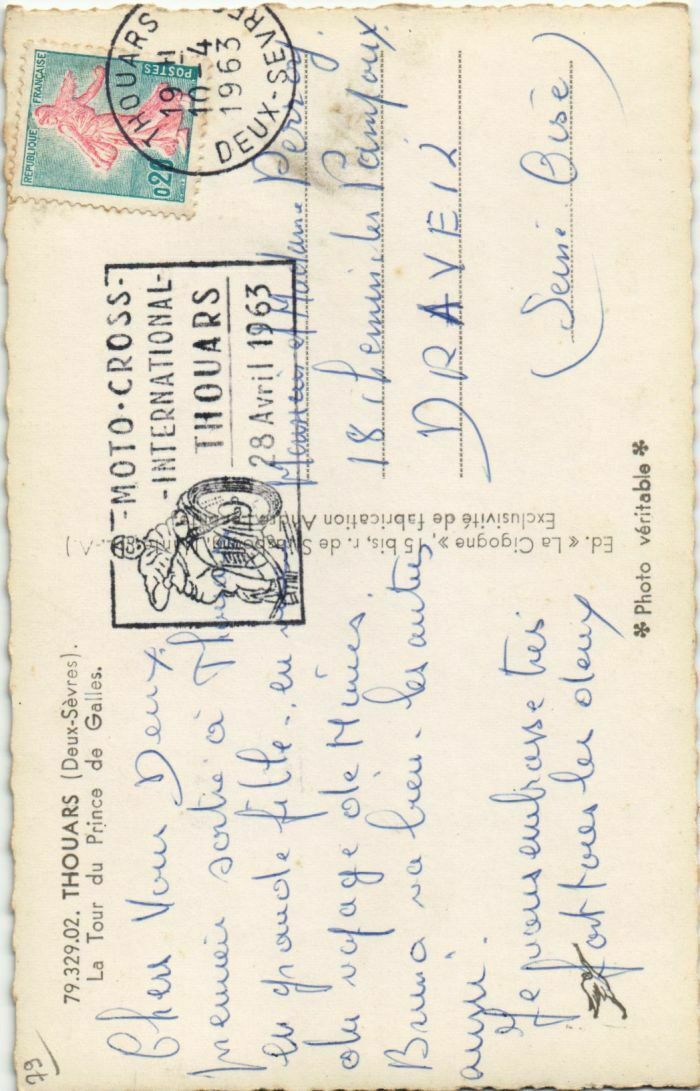 79
79.329.02. THOUARS (Deux-Sèvres).
La Tour du Prince de Galles.
Chers Vous Deux.
premier sortie à
en grande fille - en
du voyage de
Bruno va bien - les autres
aussi.
Je vous embrasse très
fort tous les deux
Ed. « La Cigogne », 15 bis, r. de
Exclusivité de fabrication André
✻ Photo véritable ✻
REPUBLIQUE FRANÇAISE
POSTES
0,20
THOUARS
19 H
10-4
1963
DEUX-SEVRES
-MOTO-CROSS-
-INTERNATIONAL-
THOUARS
28 Avril 1963
Monsieur et Madame
18 chemin des Pampoux
DRAVEIL
(Seine Oise)